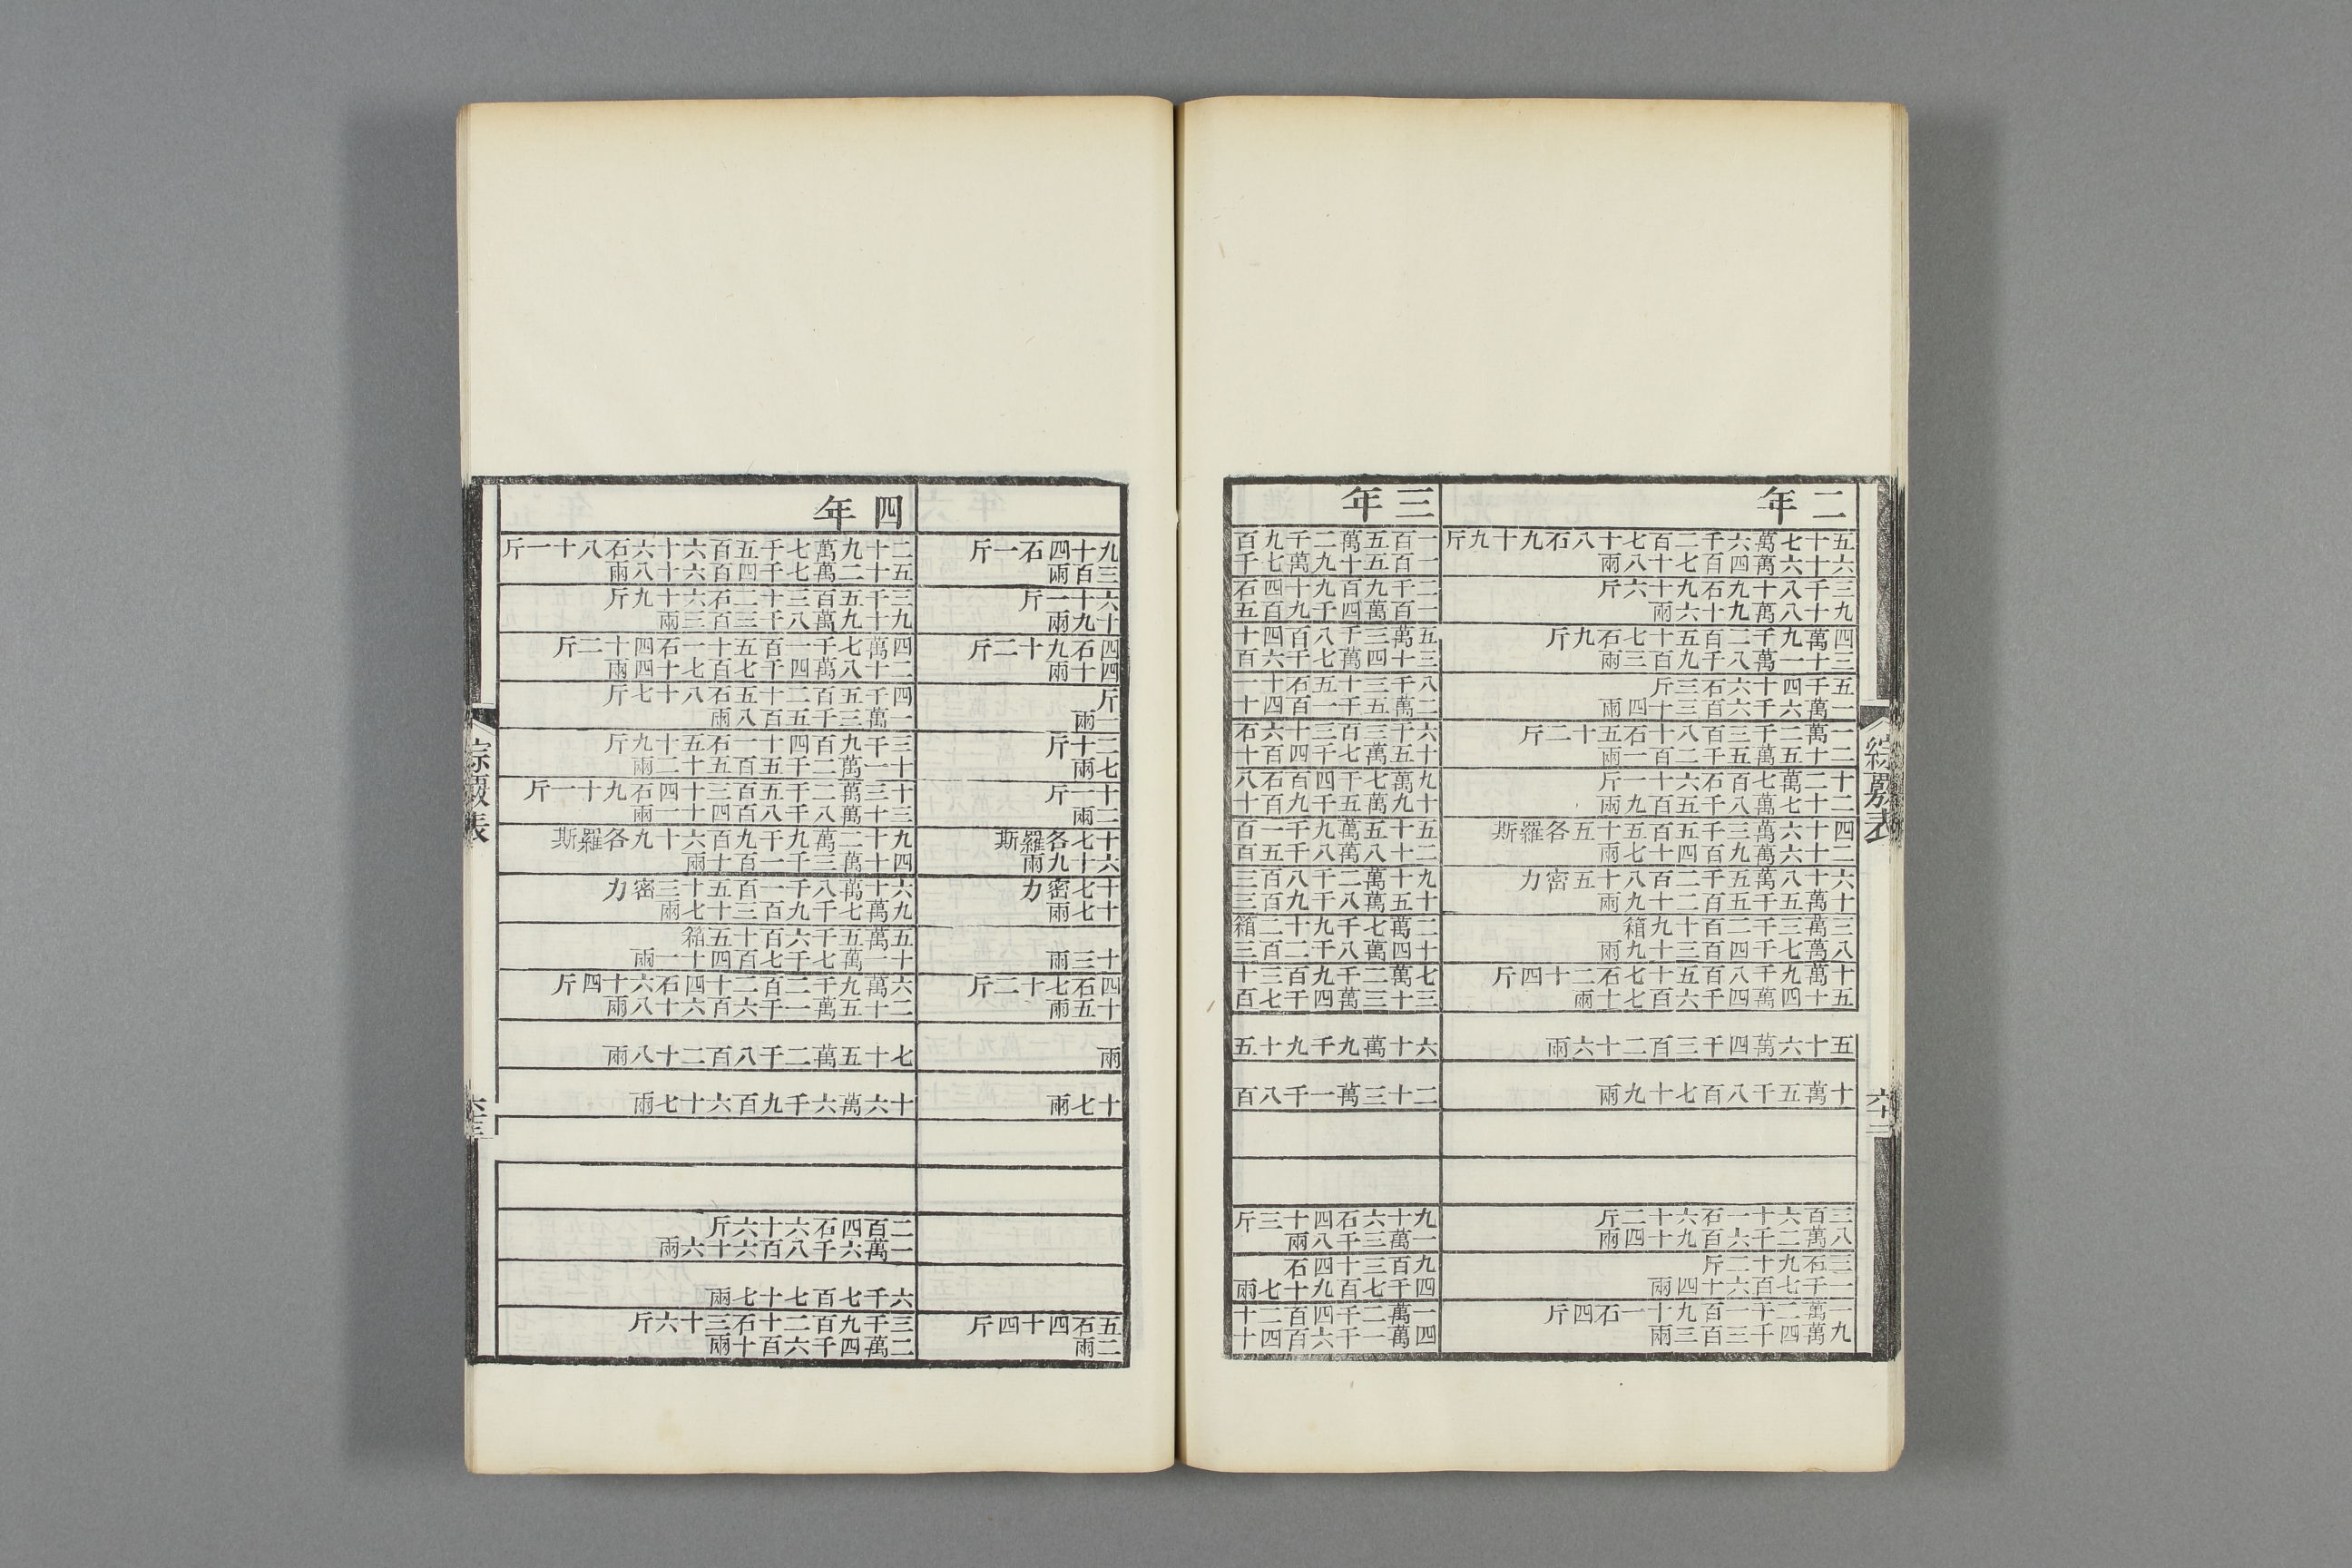 二年
五十七萬六千二百七十八石九十九斤
六十六萬四百七十八兩
三千八十九石九十六斤
九十八萬九十六兩
四萬九千二百五十七石九斤
三十一萬八千九百三兩
五千四十六石三斤
一萬六千六百三十四兩
一萬二千三百八十石五十二斤
二十五萬五千二百一兩
十二萬七百石六十一斤
二十七萬八千五百九兩
四十六萬三千五百五十五各羅斯
二十六萬九百四十七兩
六十八萬五千二百八十五密力
十萬五千五百二十九兩
三萬三千二百十九箱
八萬七千四百三十九兩
十萬九千八百五十七石二十四斤
五十四萬四千六百七十兩
五十六萬四千三百二十六兩
十萬五千八百七十九兩
三百六十一石六十二斤
八萬二千六百九十四兩
三石九十二斤
一千七百六十四兩
一萬二千一百九十一石四斤
九萬四千三百三兩
三年
一百五萬二千九百
一百五十九萬七千
二千九百九十四石
一百萬四千九百五
五萬三千八百四十
三十四萬七千六百
八千三十五石十一
二萬五千一百四十
六千三百三十六石
十五萬七千四百十
九萬七千四百石八
十九萬五千九百十
五十五萬九千一百
二十八萬八千五百
九十萬二千八百三
十五萬八千九百三
二萬七千九十二箱
十四萬八千二百三
七萬二千九百三十
三十三萬四千七百
六十萬九千九十五
二十三萬一千八百
九十六石四十三斤
一萬三千八兩
九百三十四石
四千七百九十七兩
一萬二千四百二十
四萬一千六百四十
綜覈表
六十二
九十四石一斤
三百兩
六十一斤
十九兩
四石九十二斤
四十兩
斤
一兩
三十斤
七兩
十一斤
二兩
十七各羅斯
六十九兩
十七密力
十七兩
十三兩
四石七十二斤
十五兩
兩
十七兩
五石四十四斤
二兩
四年
二十九萬七千五百六十六石八十一斤
五十二萬七千四百六十八兩
三千五百三十二石六十九斤
九十九萬八千三百三兩
四萬七千一百五十一石四十二斤
二十八萬四千七百七十四兩
四千五百二十五石八十七斤
一萬三千五百八兩
三千九百四十一石五十九斤
十一萬二千五百五十二兩
十三萬二千五百三十四石九十一斤
三十萬八千八百四十一兩
九十二萬九千九百六十九各羅斯
四十萬三千一百十兩
六十萬八千一百五十三密力
九萬七千九百三十七兩
五萬五千六百十五箱
十二萬七千七百四十一兩
六萬九千二百二十四石六十四斤
二十五萬一千六百六十八兩
七十五萬二千八百二十八兩
十六萬六千九百六十七兩
二百四石六十六斤
一萬六千八百六十六兩
六千七百七十七兩
三千九百二十石三十六斤
二萬四千六百十兩
綜覈表
六十三